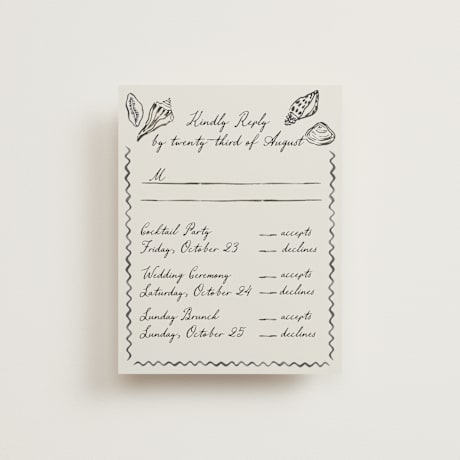 Kindly Reply
by twenty-third of August
M
Cocktail Party
accepts
Friday, October 23
declines
Wedding Ceremony
accepts
Saturday, October 24
declines
Sunday Brunch
accepts
Sunday, October 25
declines